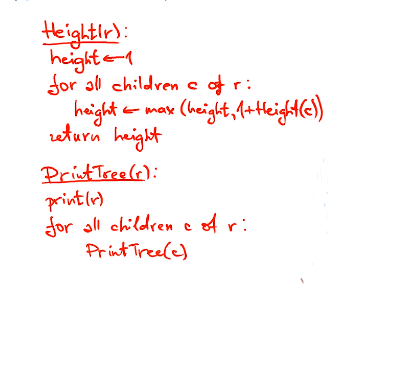 Height(r):
height ← 1
for all children c of r:
height ← max (height, 1+Height(c))
return height
PrintTree(r):
print(r)
for all children c of r:
PrintTree(c)